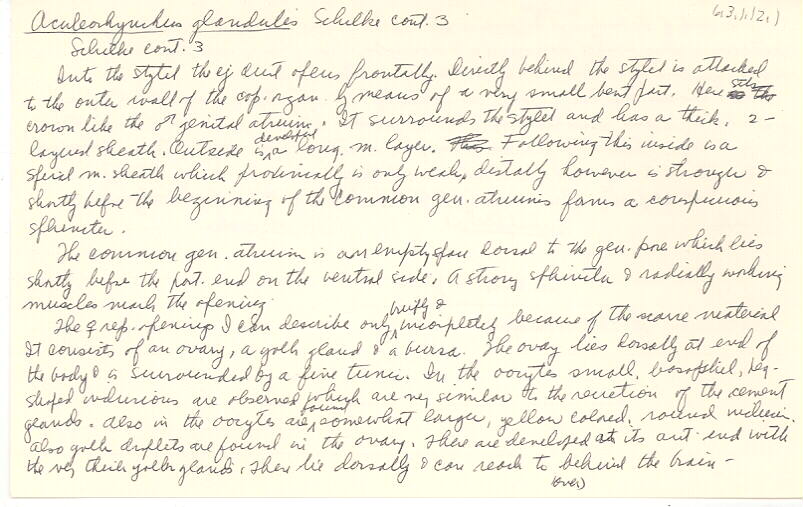 Aculeorhynchus glandulis Schilke cont. 3
Schilke cont. 3
Into the stylet the ej duct opens frontally. Directly behind the stylet is attached
to the outer wall of the cop. organ by means of a very small bent part. Here sits
crown like the ♂ genital atrium. It surrounds the stylet and has a thick, 2-
layered sheath. Outside is developed a long. m. layer. Following this inside is a
spiral m. sheath which proximally is only weak, distally however is strong &
shortly before the beginning of the common gen. atriums forms a conspicuous
sphincter.
The common gen. atrium is an empty space dorsal to the gen. pore which lies
shortly before the post. end on the ventral side. A strong sphincter & radially working
muscles mark the opening.
The ♀ rep. openings I can describe only briefly & incompletely because of the scarce material
It consists of an ovary, a yolk gland & a bursa. The ovary lies dorsally at end of
the body & is surrounded by a fine tunic. In the oocytes small, basophilic,
shaped inclusions are observed which are very similar to the secretion of the cement
glands. Also in the oocytes are found somewhat larger, yellow colored, round inclusions.
Also yolk droplets are found in the ovary. There are developed at its ant. end with
the very thick yolk glands. These lie dorsally & can reach to behind the brain –
(over)